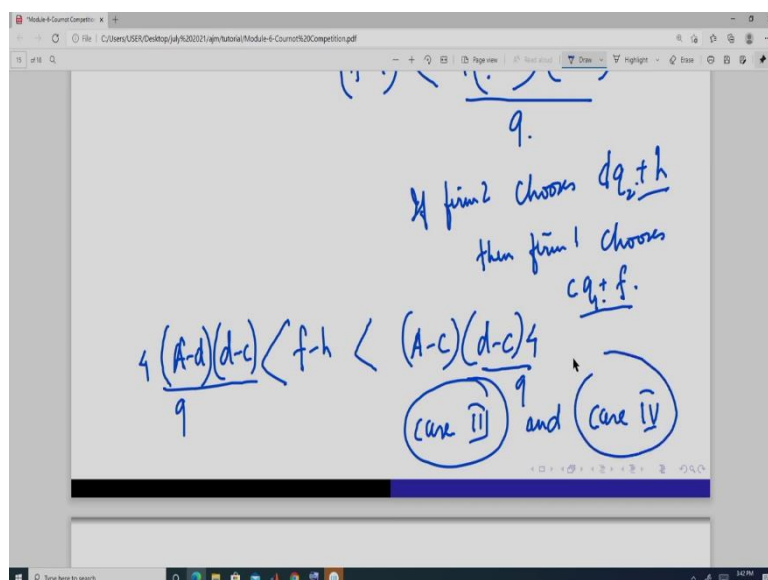 *Module-6-Cournot Competitio
File | C:/Users/USER/Desktop/july%202021/ajm/tutorial/Module-6-Cournot%20Competition.pdf
15 of 18
Page view
Read aloud
Draw
Highlight
Erase
9.
If firm 2 chooses dq₂ + h
then firm 1 chooses
cq₁ + f.
4 (A-d)(d-c) / 9 < f-h < (A-c)(d-c)4 / 9
case II and case IV
Type here to search
3:42 PM